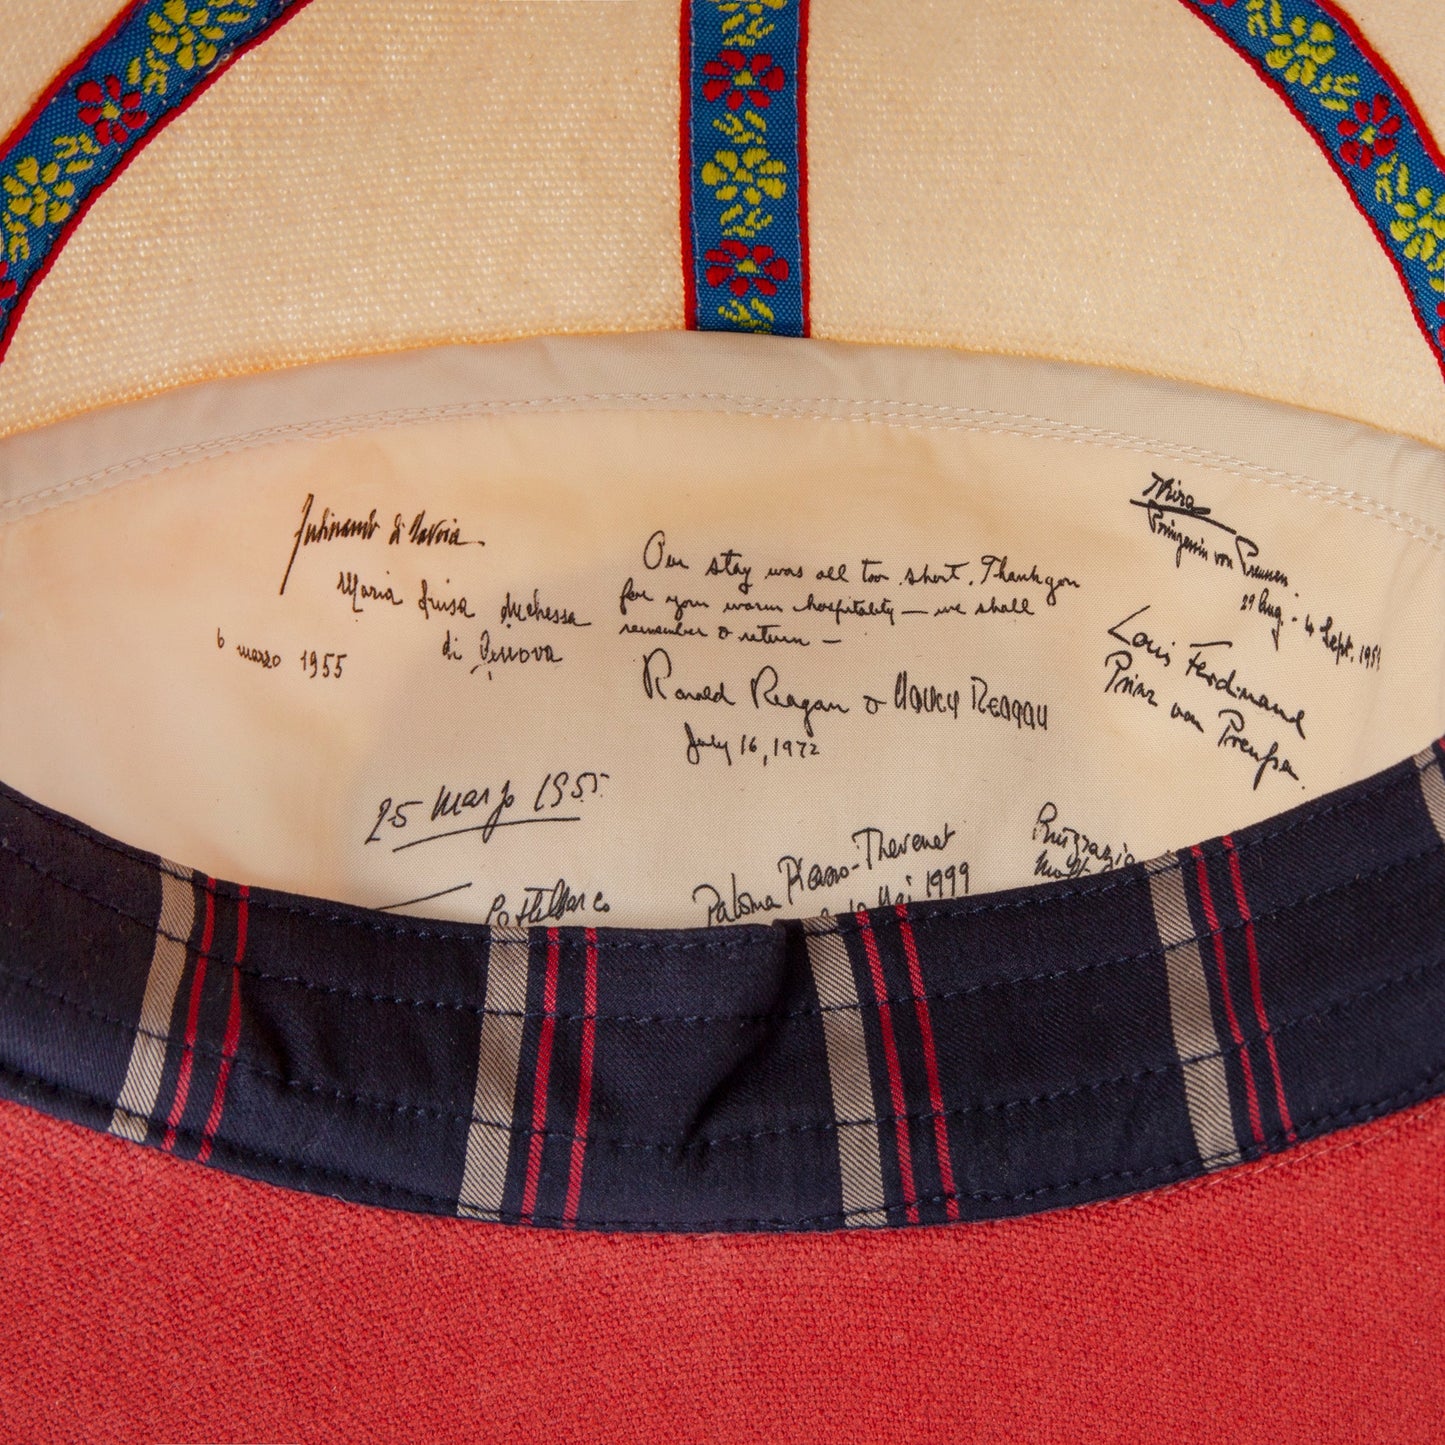 Ferdinando di Savoia
Maria Luisa Duchessa
di Genova
6 marzo 1955
25 Marzo 1955
Our stay was all too short. Thank you
for your warm hospitality — we shall
remember & return —
Ronald Reagan & Nancy Reagan
July 16, 1972
Paloma Picasso-Thevenet
Mai 1999
Kira
Prinzessin von Preussen
29 Aug. - 4 Sept. 195
Louis Ferdinand
Prinz von Preußen